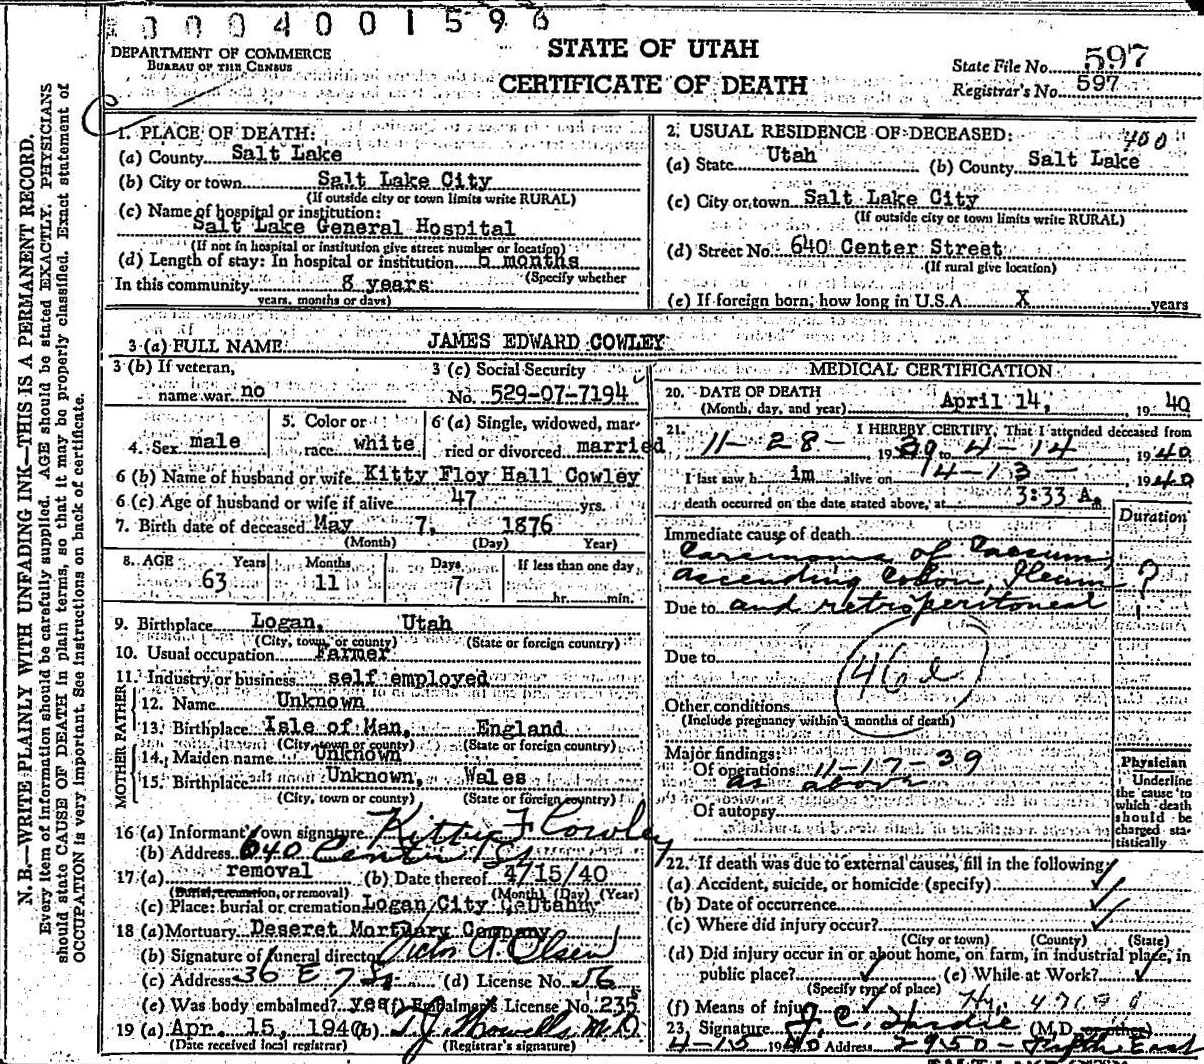 0004001596
DEPARTMENT OF COMMERCE
BUREAU OF THE CENSUS
STATE OF UTAH
CERTIFICATE OF DEATH
State File No. 597
Registrar's No. 597
N. B.—WRITE PLAINLY WITH UNFADING INK—THIS IS A PERMANENT RECORD.
Every item of information should be carefully supplied. AGE should be stated EXACTLY. PHYSICIANS
should state CAUSE OF DEATH in plain terms, so that it may be properly classified. Exact statement of
OCCUPATION is very important. See instructions on back of certificate.
1. PLACE OF DEATH:
(a) County Salt Lake
(b) City or town Salt Lake City
(If outside city or town limits write RURAL)
(c) Name of hospital or institution:
Salt Lake General Hospital
(If not in hospital or institution give street number or location)
(d) Length of stay: In hospital or institution 5 months
(Specify whether
In this community 8 years
years, months or days)
2. USUAL RESIDENCE OF DECEASED: 400
(a) State Utah (b) County Salt Lake
(c) City or town Salt Lake City
(If outside city or town limits write RURAL)
(d) Street No. 640 Center Street
(If rural give location)
(e) If foreign born, how long in U.S.A. X years
3 (a) FULL NAME JAMES EDWARD COWLEY
3 (b) If veteran,
name war no
3 (c) Social Security
No. 529-07-7194
4. Sex male
5. Color or
race white
6 (a) Single, widowed, mar-
ried or divorced married
6 (b) Name of husband or wife Kitty Floy Hall Cowley
6 (c) Age of husband or wife if alive 47 yrs.
7. Birth date of deceased May 7, 1876
(Month) (Day) Year)
8. AGE Years Months Days If less than one day
63 11 7 hr. min.
9. Birthplace Logan, Utah
(City, town, or county) (State or foreign country)
10. Usual occupation Farmer
11. Industry or business self employed
FATHER
12. Name Unknown
13. Birthplace Isle of Man, England
(City, town or county) (State or foreign country)
MOTHER
14. Maiden name Unknown
15. Birthplace Unknown, Wales
(City, town or county) (State or foreign country)
16 (a) Informant own signature Kitty F Cowley
(b) Address 640 Center St
17. (a) removal (b) Date thereof 4/15/40
(Burial, cremation, or removal) (Month) (Day) (Year)
(c) Place: burial or cremation Logan City Utah
18 (a) Mortuary Deseret Mortuary Company
(b) Signature of funeral director Victor A. Olsen
(c) Address 36 E 7 So (d) License No. 56
(e) Was body embalmed? yes (f) Embalmer's License No. 235
19 (a) Apr. 15, 1940 (b) T. J. Howells M.D.
(Date received local registrar) (Registrar's signature)
MEDICAL CERTIFICATION
20. DATE OF DEATH
(Month, day, and year) April 14, 19 40
21. I HEREBY CERTIFY, That I attended deceased from
11-28- 1939 to 4-14 1940
I last saw h im alive on 4-13- 1940
death occurred on the date stated above, at 3:33 A.
Duration
Immediate cause of death
Carcinoma of Caecum,
ascending colon, Ileum ?
Due to and retroperitoneal
Due to
46 e
Other conditions
(Include pregnancy within 3 months of death)
Major findings:
Of operations 11-17-39
as above
Of autopsy
Physician
Underline
the cause to
which death
should be
charged sta-
tistically
22. If death was due to external causes, fill in the following:
(a) Accident, suicide, or homicide (specify)
(b) Date of occurrence
(c) Where did injury occur?
(City or town) (County) (State)
(d) Did injury occur in or about home, on farm, in industrial place, in
public place? (e) While at Work?
(Specify type of place)
(f) Means of injury
23. Signature J. C. Hardie (M.D. or other)
4-15 1940 Address 2950 - Fifth East